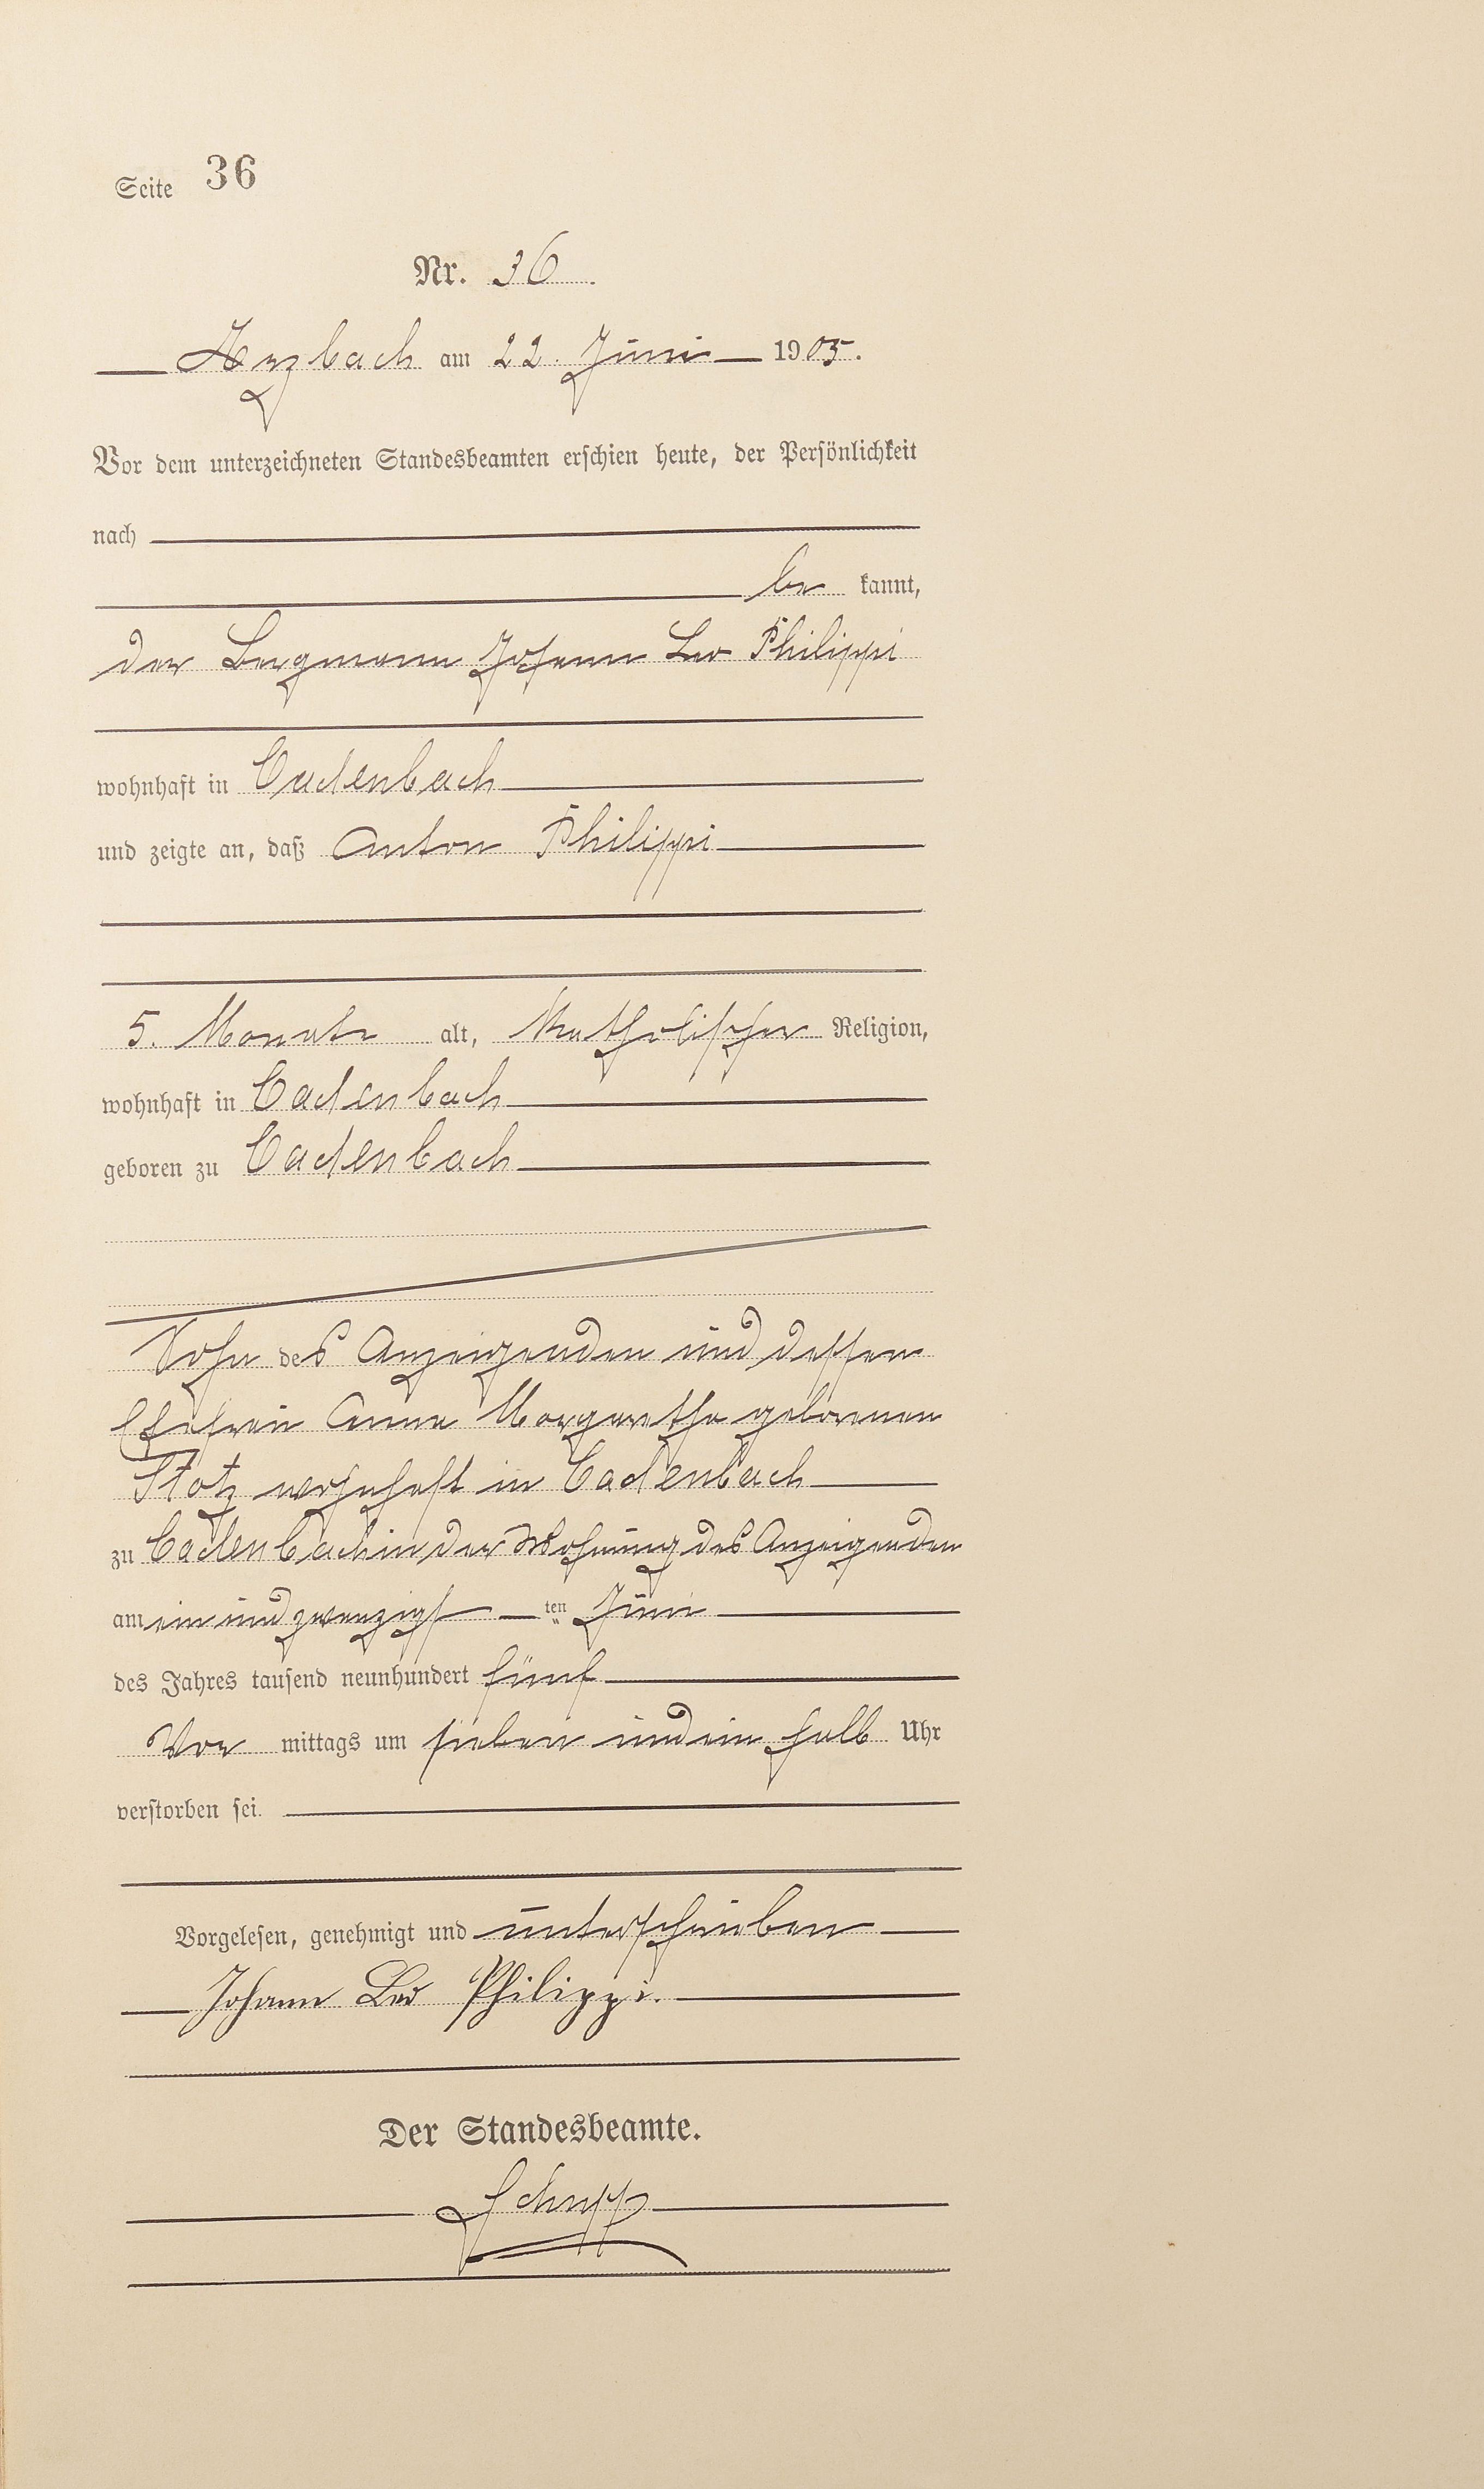 Seite 36
Nr. 36.
Arzbach am 22. Juni 1905.
Vor dem unterzeichneten Standesbeamten erschien heute, der Persönlichkeit
nach
be kannt,
der Bergmann Johann Leo Philippi
wohnhaft in Cadenbach
und zeigte an, daß Anton Philippi
5. Monate alt, katholischer Religion,
wohnhaft in Cadenbach
geboren zu Cadenbach
Sohn des Anzeigenden und dessen
Ehefrau Anna Margaretha geborenen
Stotz wohnhaft in Cadenbach
zu Cadenbach in der Wohnung des Anzeigenden
am ein und zwanzigsten Juni
des Jahres tausend neunhundert fünf
Vor mittags um sieben und ein halb Uhr
verstorben sei.
Vorgelesen, genehmigt und unterschrieben
Johann Leo Philippi.
Der Standesbeamte.
Schupp